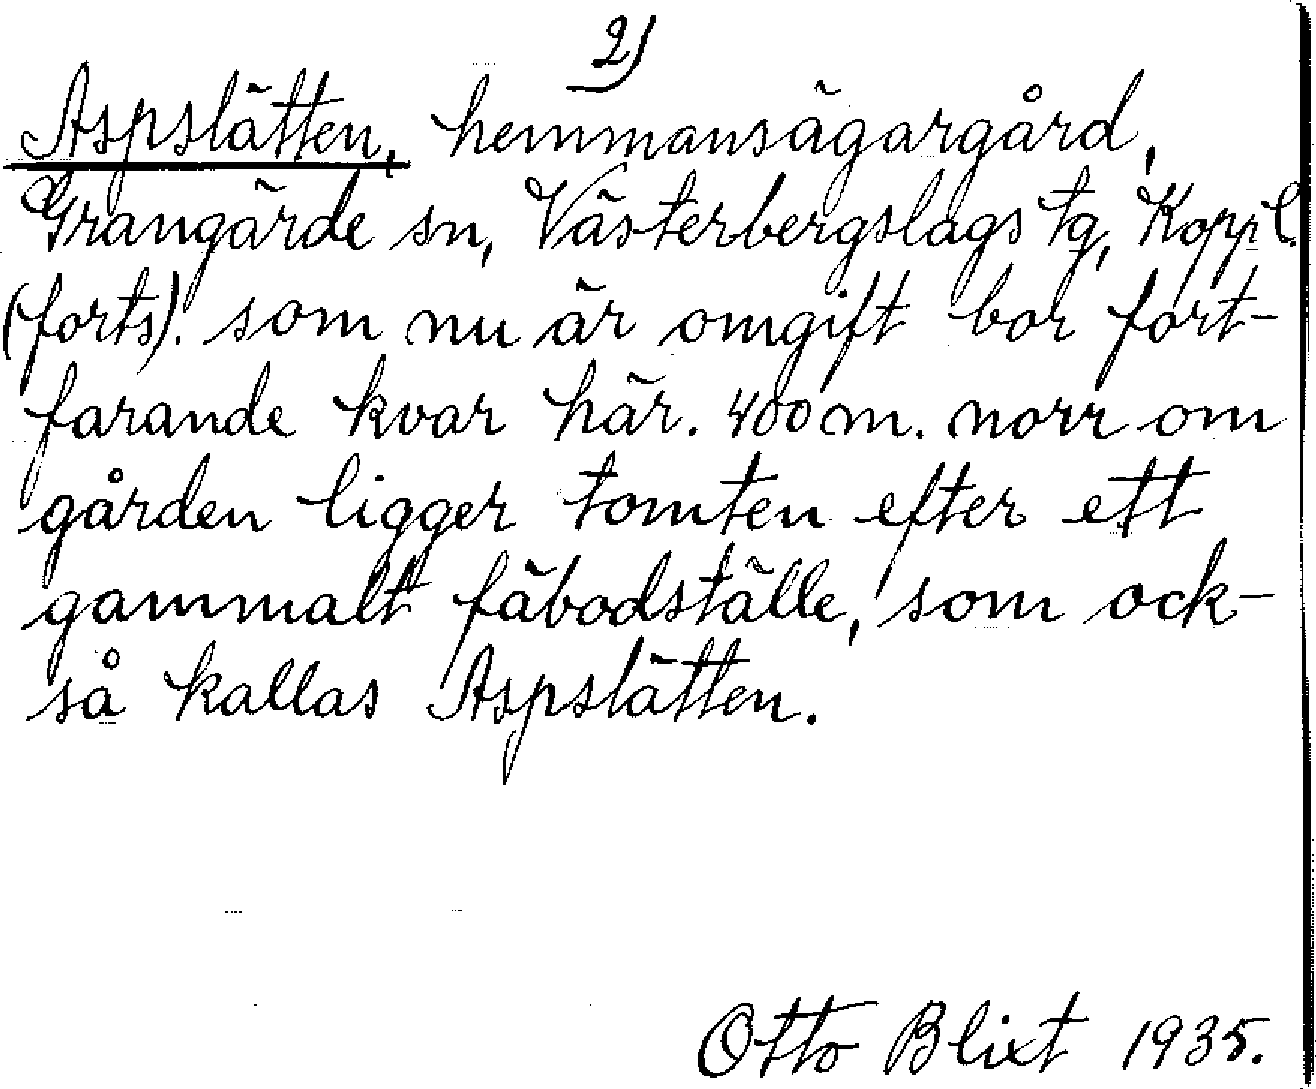 2)
Aspslätten, hemmansägargård,
Grangärde sn, Västerbergslags tg, Kopp.l.
(forts). som nu är omgift bor fort-
farande kvar här. 400 m. norr om
gården ligger tomten efter ett
gammalt fäbodställe, som ock-
så kallas Aspslätten.
Otto Blixt 1935.